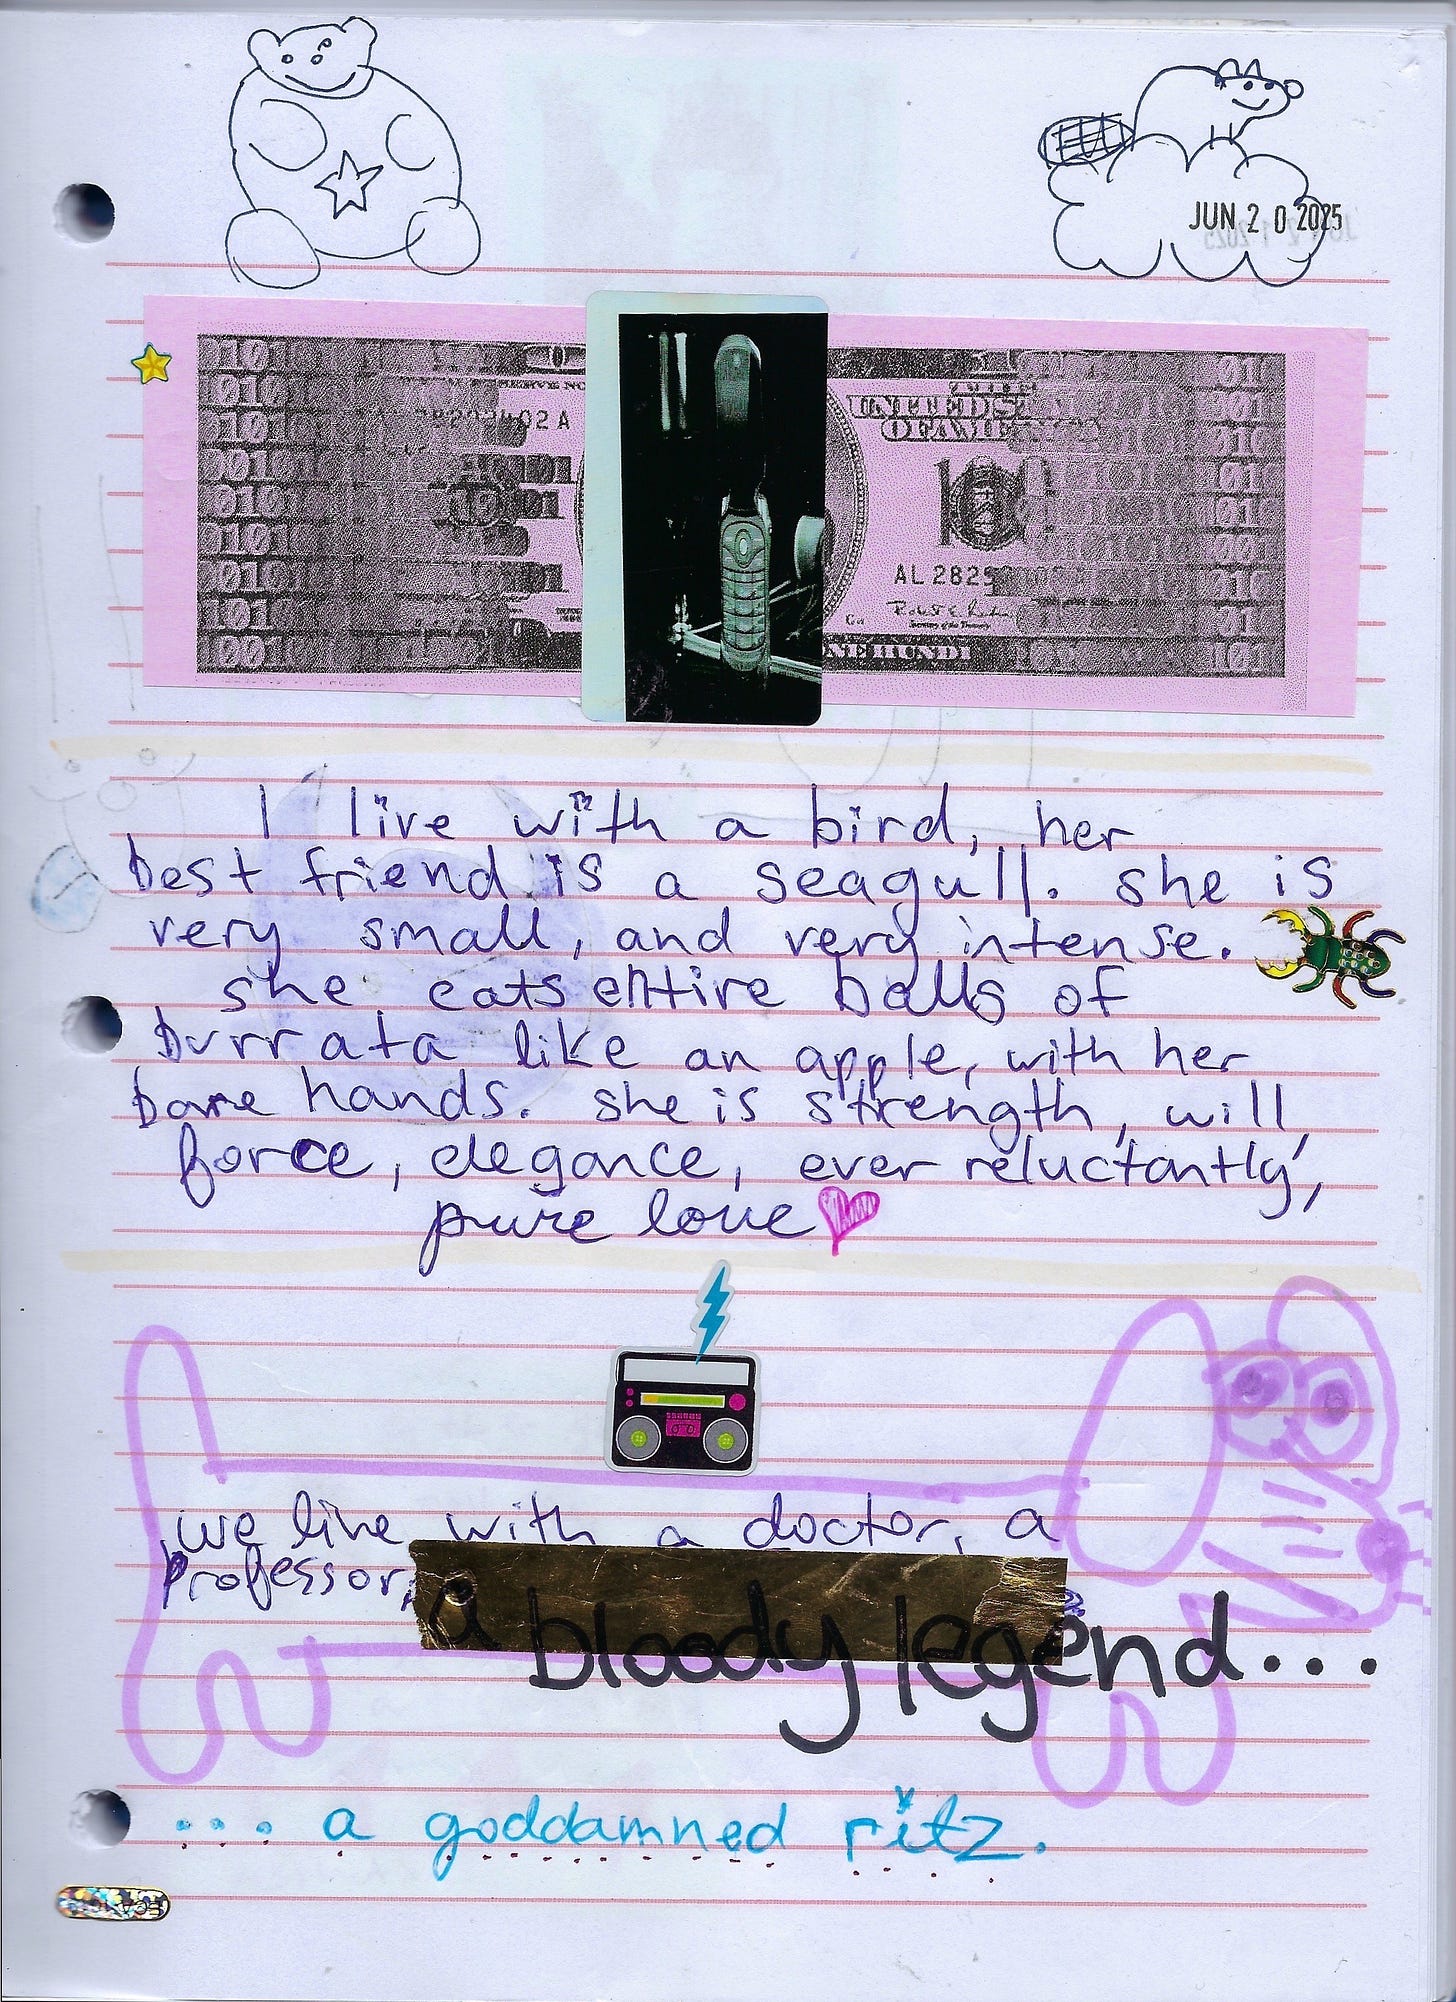 JUN 20 2025
UNITED S
OF AME
AL 2825
Secretary of the Treasury
I live with a bird, her
best friend is a seagull. she is
very small, and very intense.
she eats entire balls of
burrata like an apple, with her
bare hands. she is strength, will,
force, elegance, ever reluctantly,
pure love
we live with a doctor, a
professor,
a bloody legend...
... a goddamned ritz.